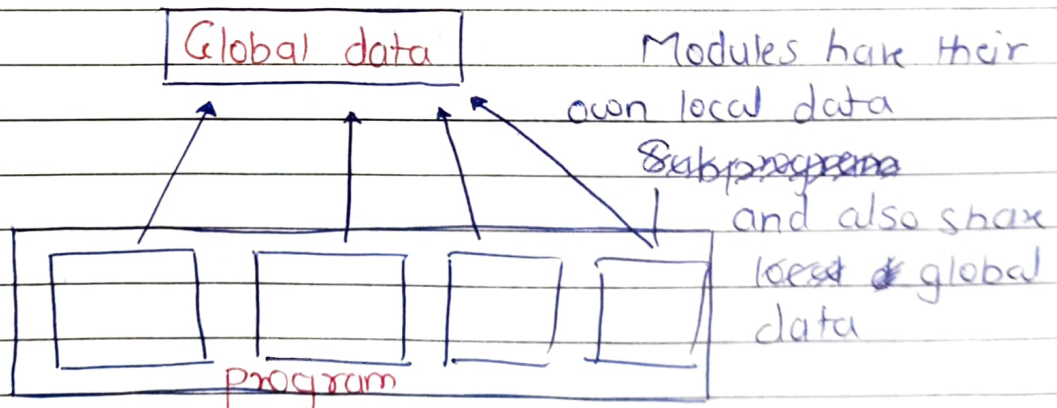 Global data
Modules have their
own local data
and also share
global
data
program